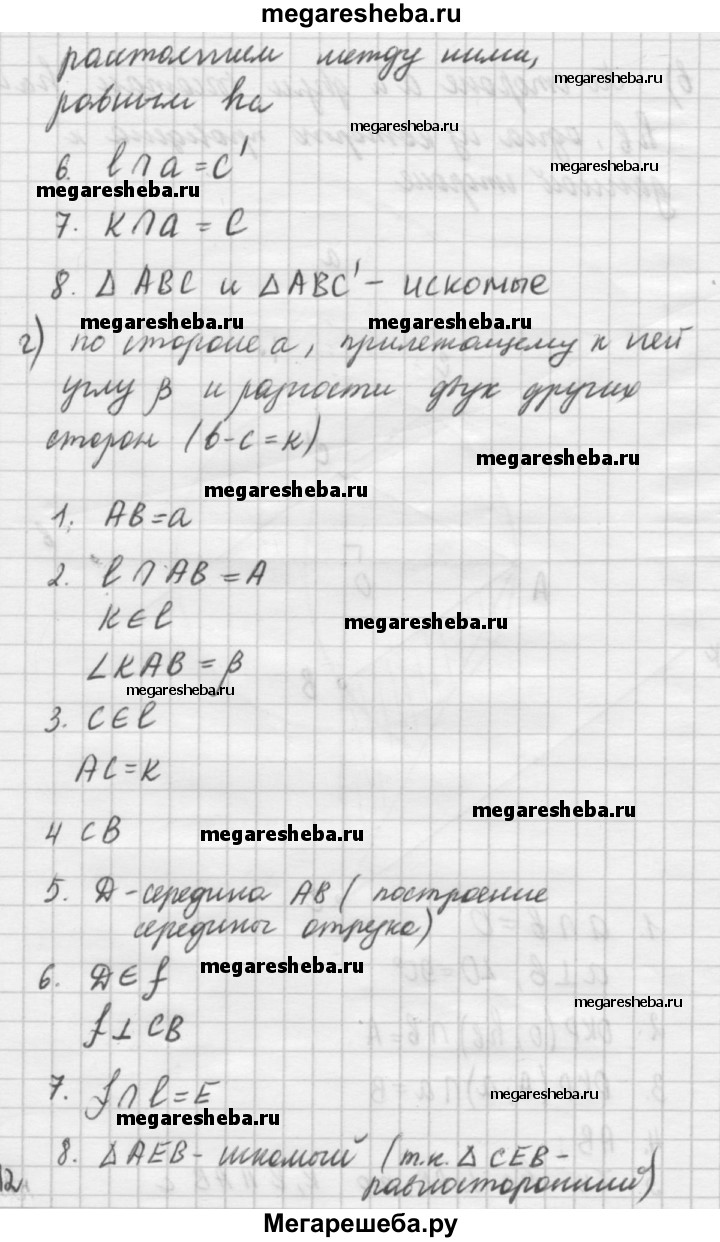 megaresheba.ru
расстоянием между ними,
megaresheba.ru
равным ha
megaresheba.ru
6. l∩a=C'
megaresheba.ru
megaresheba.ru
7. K∩a=C
8. △ABC и △ABC' - искомые
megaresheba.ru megaresheba.ru
г) по стороне a, прилежащему к ней
углу β и разности двух других
сторон (b-c=к)
megaresheba.ru
megaresheba.ru
1. AB=a
2. l∩AB=A
K∈l
megaresheba.ru
∠KAB=β
megaresheba.ru
3. C∈l
AC=K
megaresheba.ru
4 CB
megaresheba.ru
5. Д-середина AB (построение
середины отрезка)
6. Д∈f
megaresheba.ru
megaresheba.ru
f⊥CB
7. f∩l=E
megaresheba.ru
megaresheba.ru
8. △AEB- искомый (т.к. △CEB-
равносторонний)
12
Мегарешеба.ру